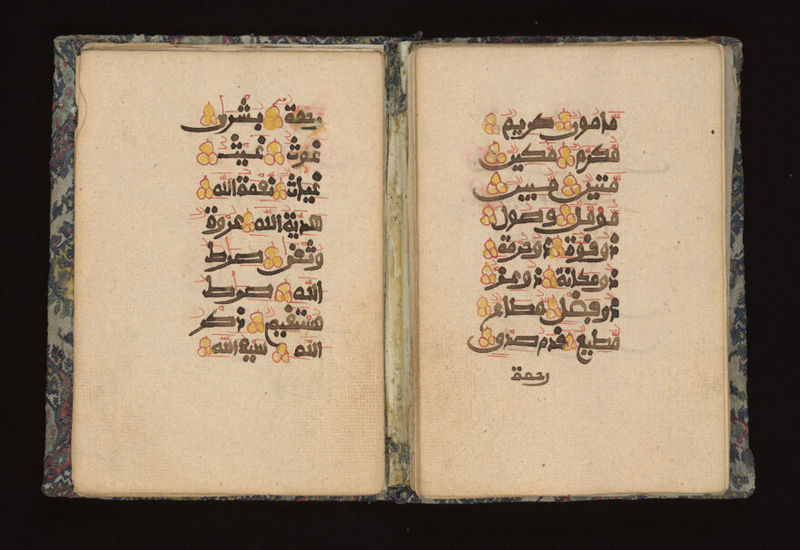 مامون كريم
مكرم مكين
متين مبين
مؤمل وصول
ذو قوة ذو حرمة
ذو مكانة ذو عز
ذو فضل مطاع
مطيع قدم صدق
رحمة
رحمة بشرى
غوث غيث
غياث نعمة الله
هدية الله عروة
وثقى صرط
الله صرط
مستقيم ذكر
الله سيف الله